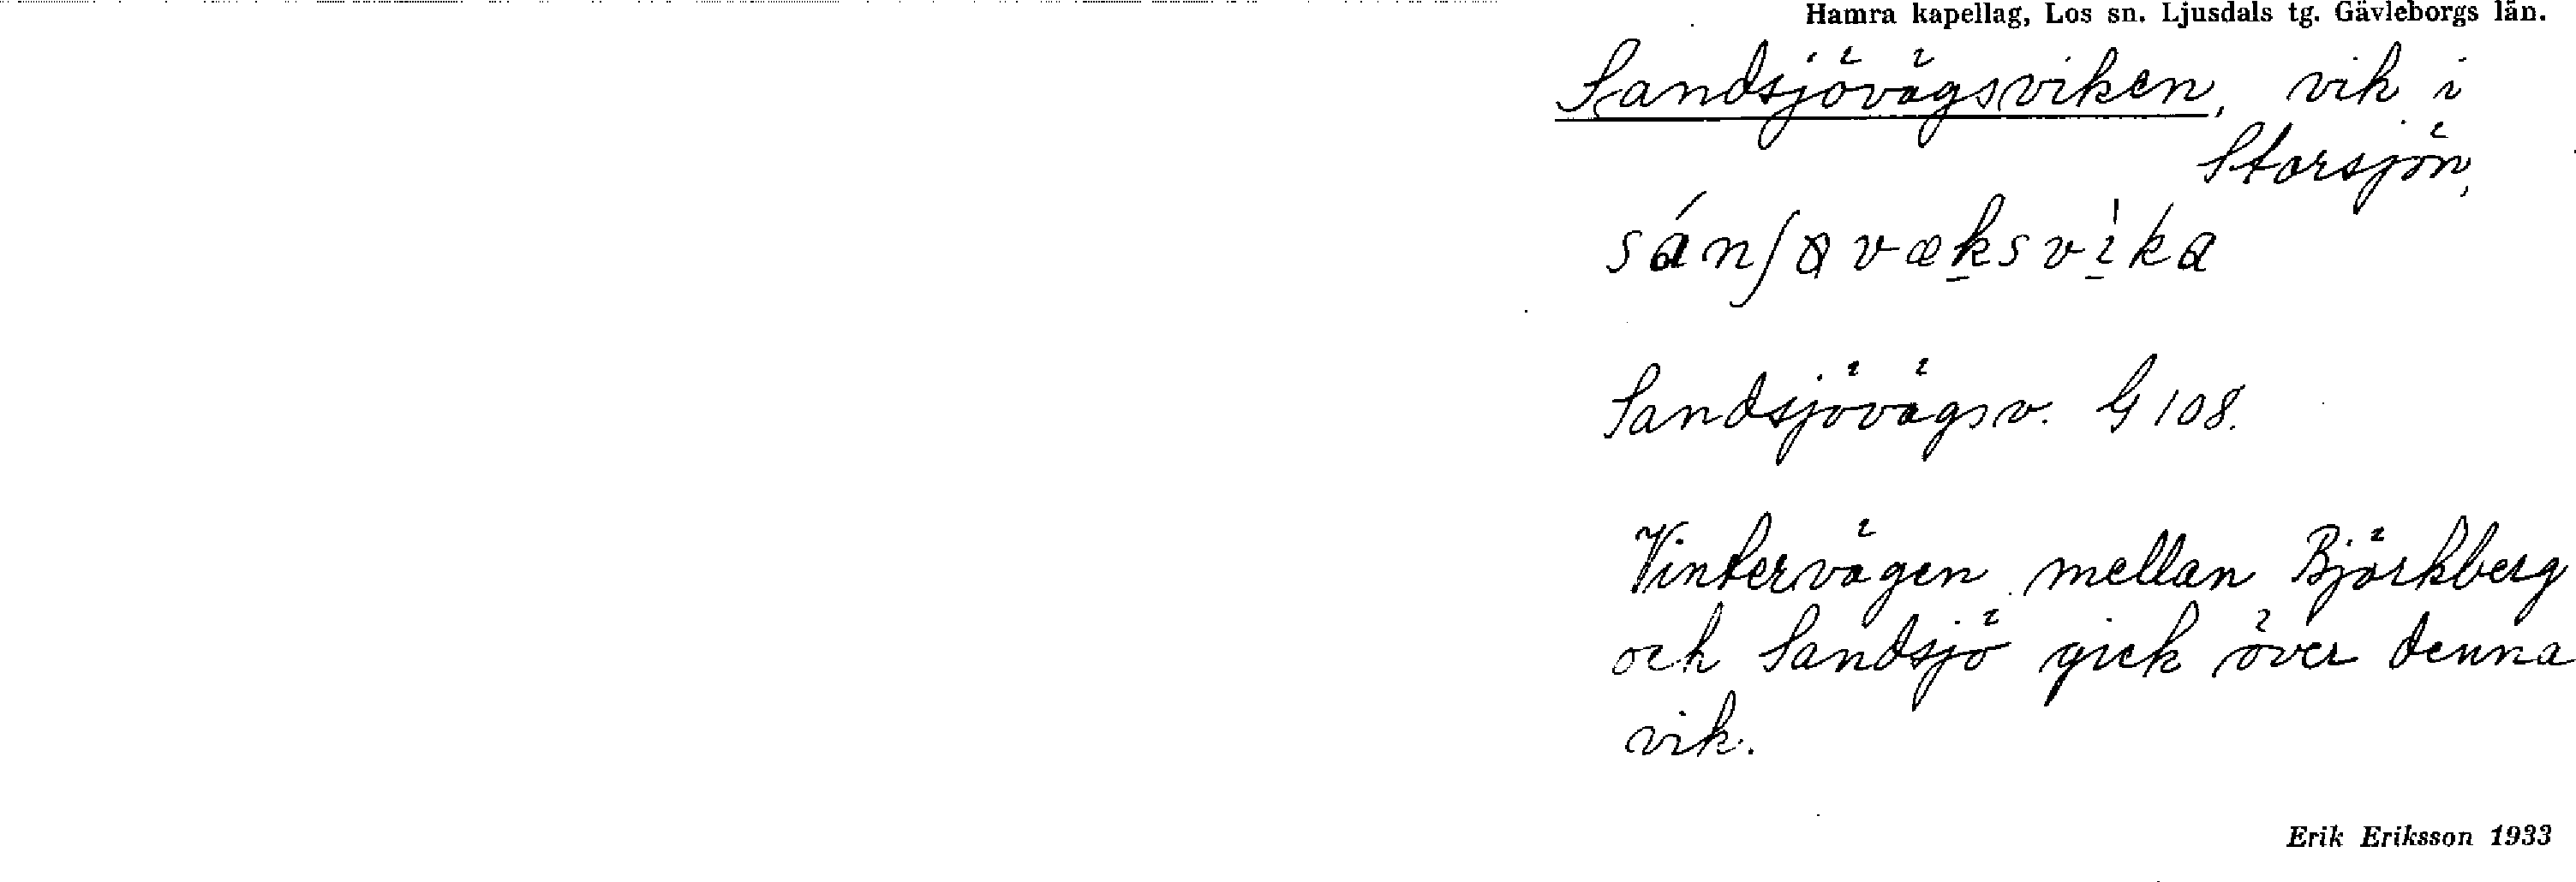 Hamra kapellag, Los sn. Ljusdals tg. Gävleborgs län.
Sandsjövägsviken, vik i
Storsjön,
Sandsjövägsv. G 108.
Vintervägen mellan Björkberg
och Sandsjö gick över denna
vik.
Erik Eriksson 1933